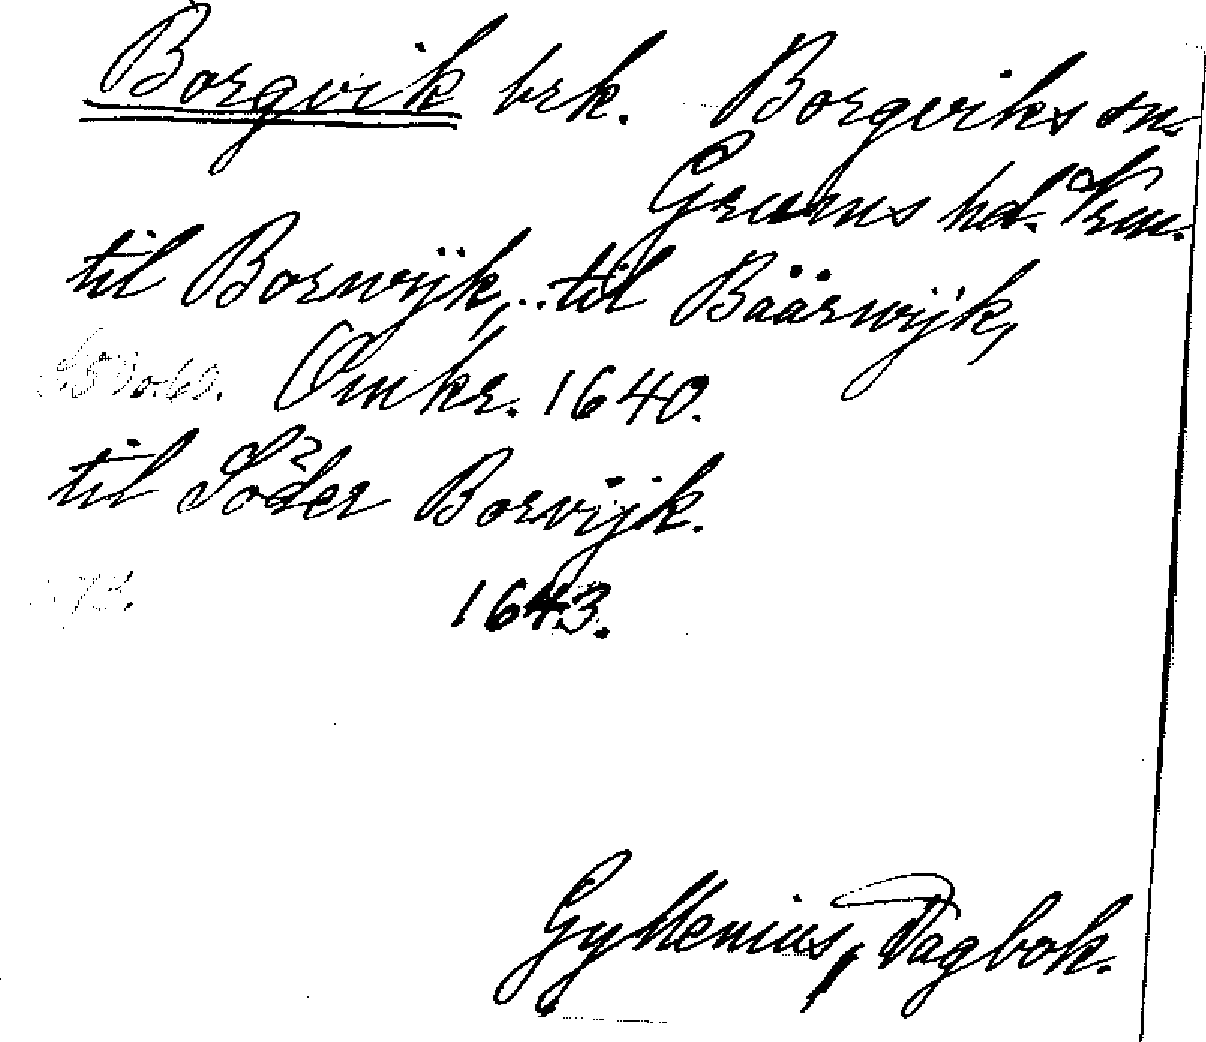 Borgvik brk. Borgviks sn.
Grums hd. Vrm.
til Borwijk, .. til Bäärwijk,
Omkr. 1640.
til Söder Borvijk.
1643.
Gyllenius, Dagbok.